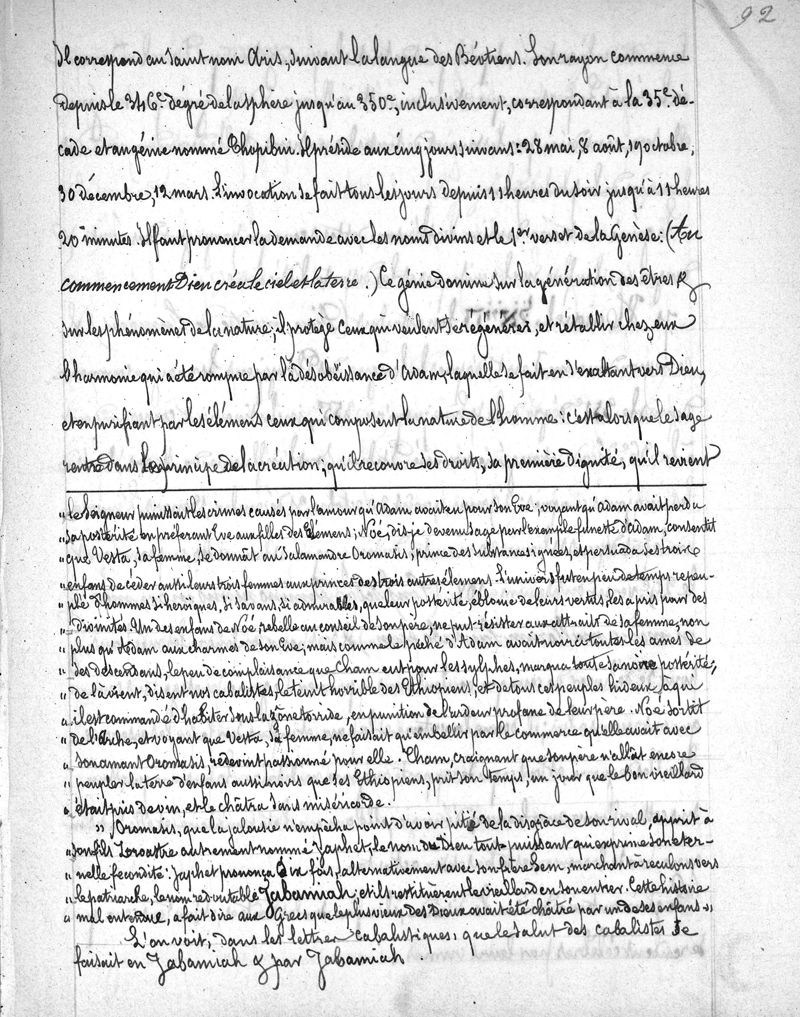 92
Il correspond au saint nom Aris, suivant la langue des Béotiens. Son rayon commence
depuis le 346e. dégré de la sphère jusqu'au 350e, inclusivement, correspondant à la 35e. dé-
cade et au génie nommé Chopibin. Il préside aux cinq jours suivans: 28 mai, 8 août, 19 octobre,
30 décembre, 12 mars. L'invocation se fait tous les jours depuis 11 heures du soir jusqu'à 11 heures
20 minutes. Il faut prononcer la demande avec les noms divins et le 1er verset de la Genèse: (Au
commencement Dieu créa le ciel et la terre.) Ce génie domine sur la génération des êtres &
sur les phénomènes de la nature; il protège ceux qui veulent se régénérer, et rétablir chez eux
l'harmonie qui a été rompue par la désobéissance d'Adam, laquelle se fait en s'exaltant vers Dieu,
et en purifiant par les élémens ceux qui composent la nature de l'homme: c'est alors que le sage
rentre dans le principe de la création; qu'il recouvre ses droits, sa première dignité, qu'il revient
" le Seigneur punissait les crimes causés par l'amour qu'Adam avait eu pour son Eve; voyant qu'Adam avait perdu
" sa postérité en préférant Eve aux filles des Elémens; Noé, dis-je devenu sage par l'exemple funeste d'Adam, consentit
" que Vesta, sa femme, se donnât au Salamandre Oromasis, prince des substances ignées, et persuada ses trois
" enfans de céder aussi leurs trois femmes aux princes des trois autres élemens. L'univers fut en peu de temps repeu-
" plé d'hommes si heroïques, si savans, si admirables, que leur postérité, éblouie de leurs vertus, les a pris pour des
" divinités. Un des enfans de Noé, rebelle au conseil de son père, ne put résister aux attraits de sa femme, non
" plus qu'Adam aux charmes de son Eve; mais comme le péché d'Adam avait noirci toutes les ames de
" ses descendans, le peu de complaisance que Cham eut pour les sylphes, marqua toute sa noire postérité;
" de là vient, disent nos cabalistes, le teint horrible des Ethiopiens, et de tous ces peuples hideux à qui
" il est commandé d'habiter sous la zône torride, en punition de l'ardeur profane de leur pere. Noé sortit
" de l'arche, et voyant que Vesta, sa femme, ne faisait qu'embellir par le commerce qu'elle avait avec
" son amant Oromasis, redevint passionné pour elle. Cham, craignant que son père n'allât encore
" peupler la terre d'enfans aussi noirs que ses Ethiopiens, prit son temps, un jour que le bon vieillard
" était pris de vin, et le châtra sans miséricorde.
" Oromasis, que la jalousie n'empêcha point d'avoir pitié de la disgrâce de son rival, apprit à
" son fils Zoroastre autrement nommé Japhet, le nom du Dieu tout-puissant qui exprime son éter-
" nelle fecondité: Japhet prononça six fois, alternativement avec son frère Sem, marchant à reculons vers
" le patriarche, le nom redoutable Jabamiah, et ils restituèrent le vieillard en son entier. Cette histoire
" mal entendue, a fait dire aux Grecs que le plus vieux des Dieux avait été châtré par un de ses enfans."
L'on voit, dans les lettres cabalistiques, que le salut des cabalistes se
faisait en Jabamiah & par Jabamiah.